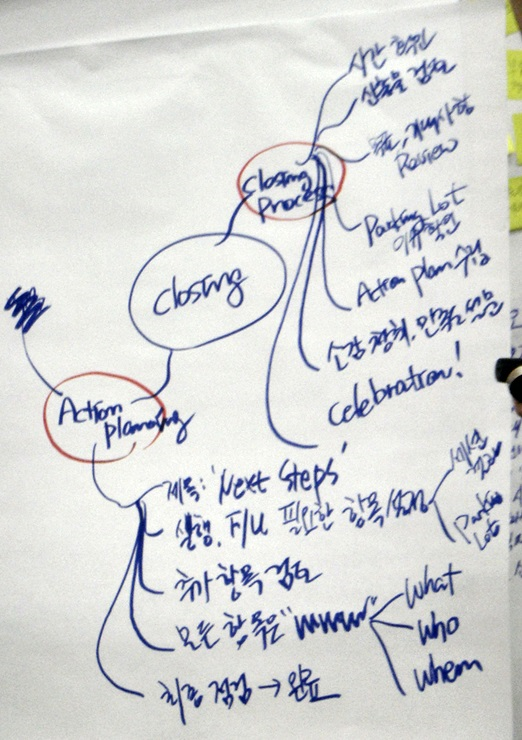 시간 확인
산출물 검토
Review
Parking Lot
이슈확인
Action plan 수립
소감 청취, 만족도 설문
celebration!
Closing
Process
closing
Action
planning
제목: 'Next Steps'
실행, F/U 필요한 항목 선정
Parking
Lots
추가 항목 검토
모든 항목은 "www"
what
who
when
최종 점검 → 완료